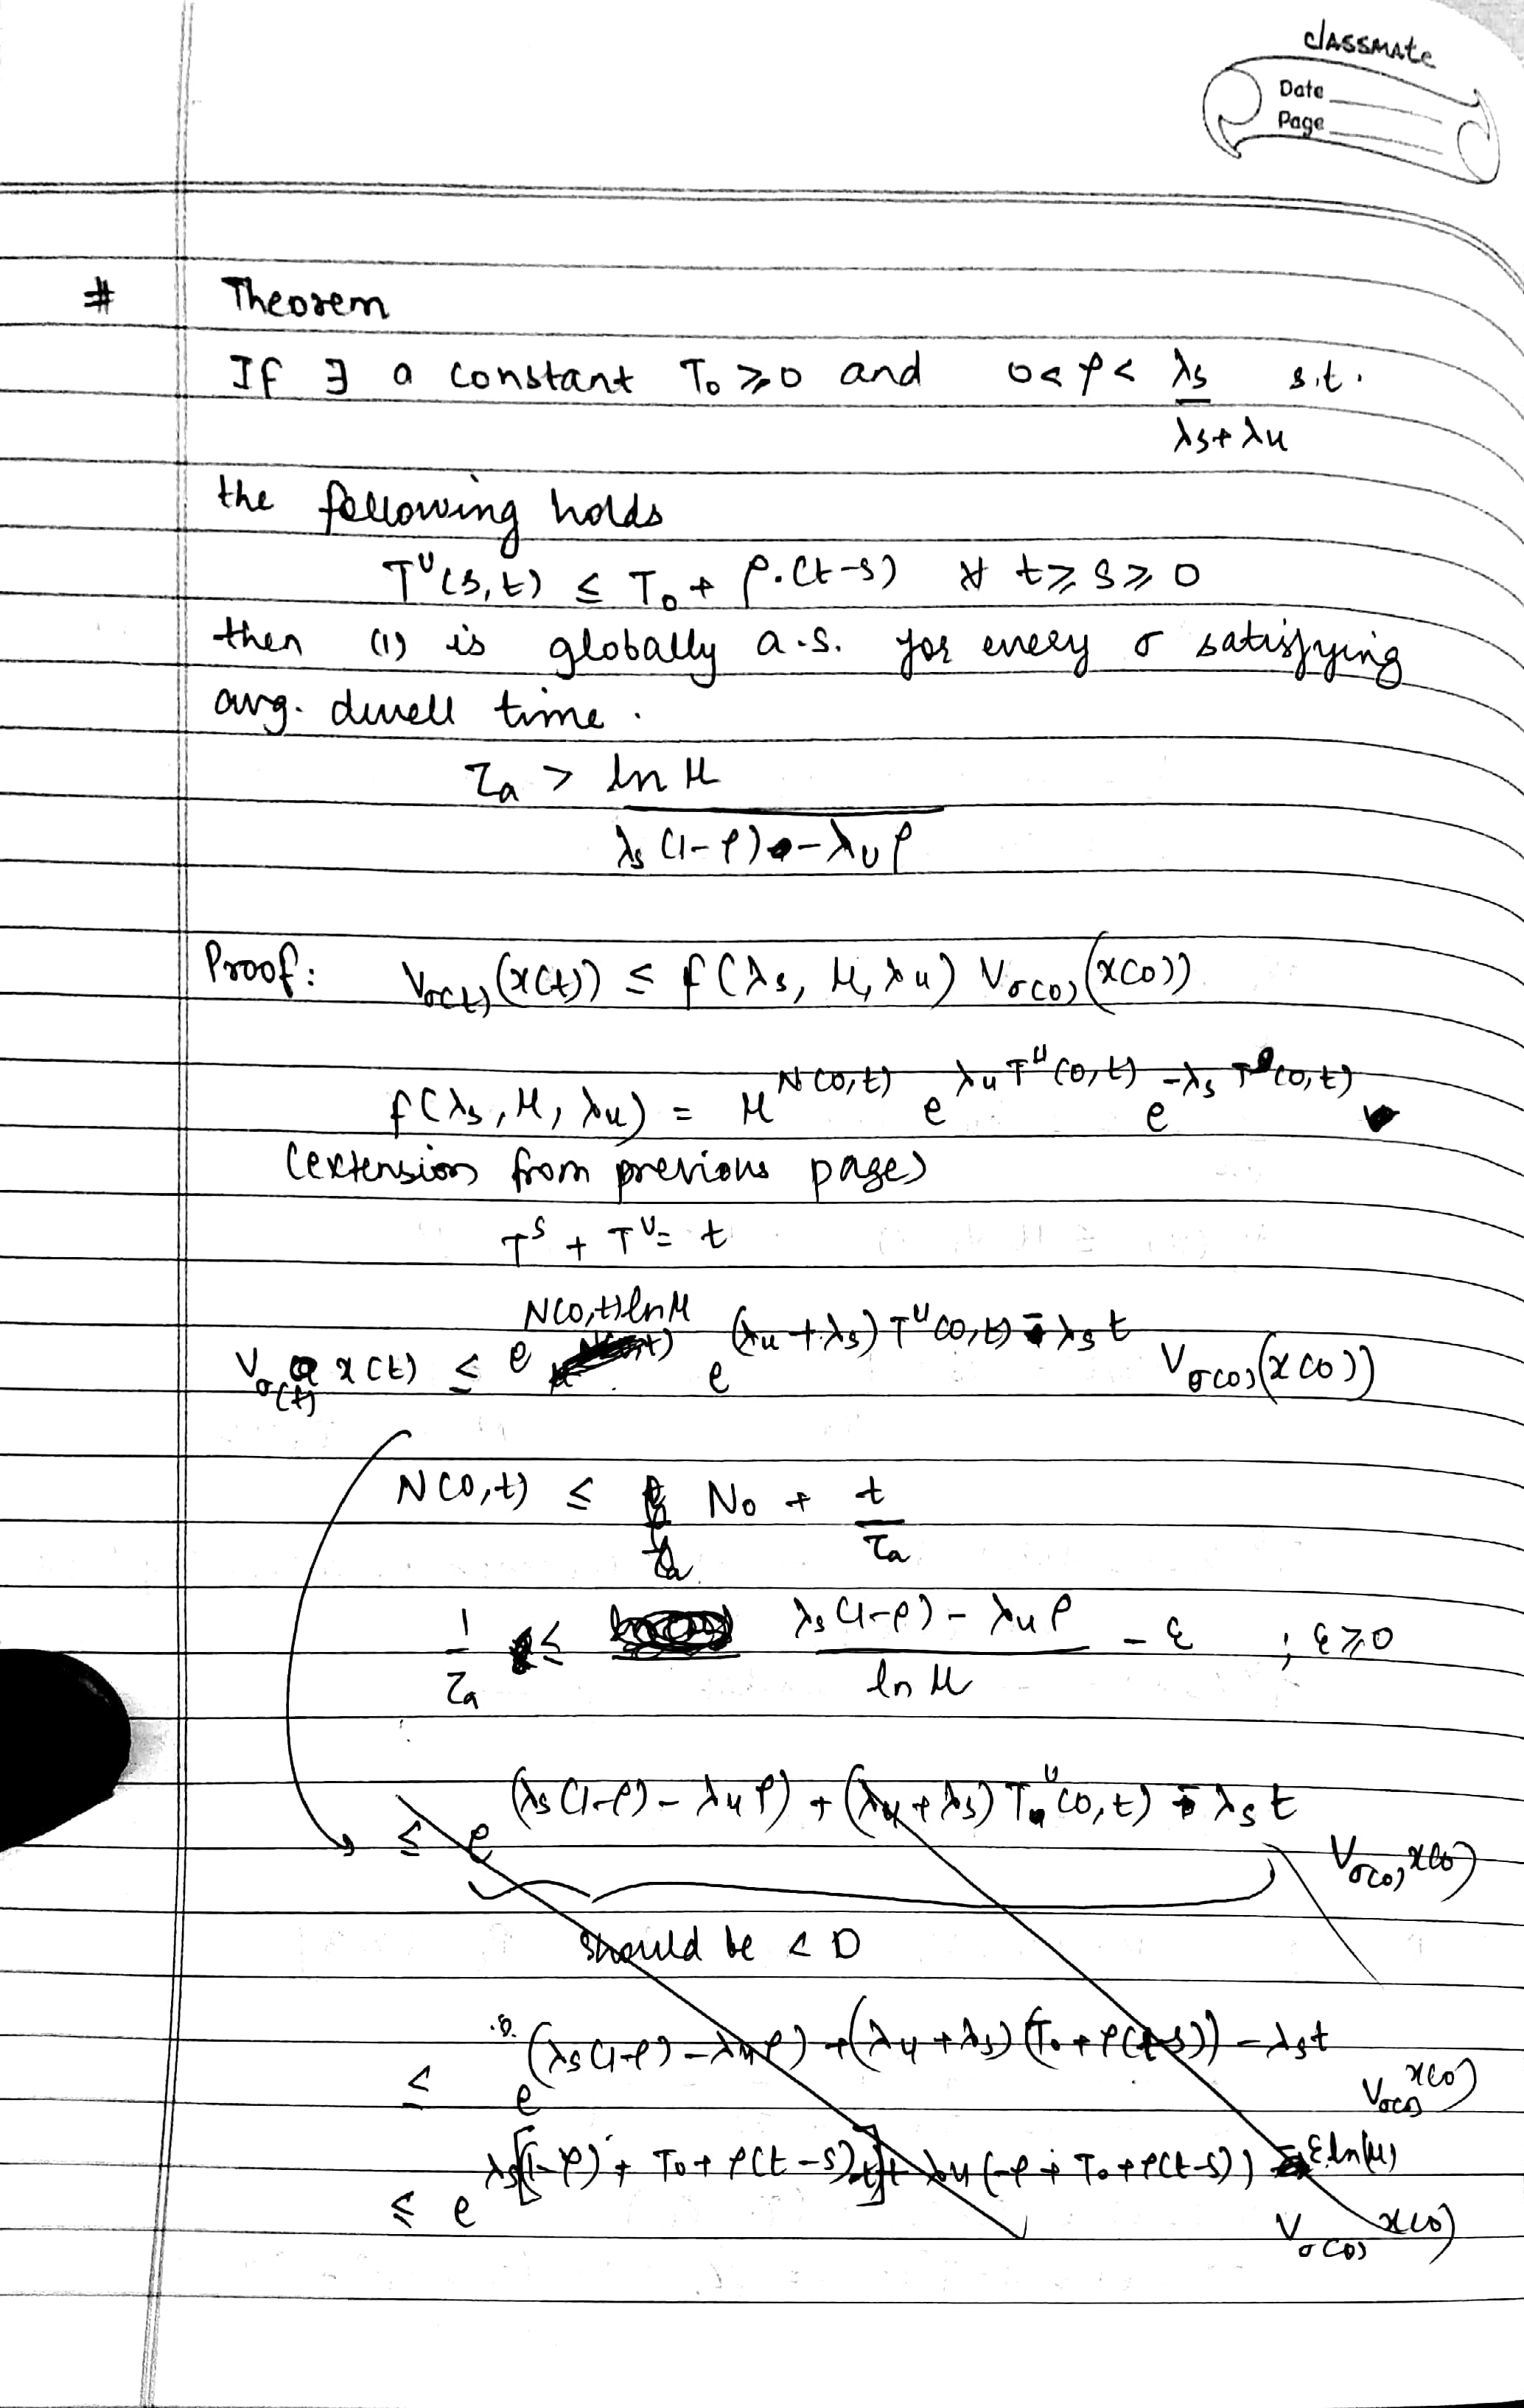 classmate
Date
Page
# Theorem
If ∃ a constant T₀ ≥ 0 and 0 < ρ < λs / (λs + λu) s.t.
the following holds
Tᵁ(s, t) ≤ T₀ + ρ.(t-s) ∀ t ≥ s ≥ 0
then (1) is globally a.s. for every σ satisfying
avg. dwell time.
τa > ln μ / (λs (1-ρ) - λu ρ)
Proof: Vσ(t) (x(t)) ≤ f(λs, μ, λu) Vσ(0) (x(0))
f(λs, μ, λu) = μ^N(0,t) e^λu Tᵁ(0,t) e^-λs Tˢ(0,t)
(extension from previous page)
Tˢ + Tᵁ = t
Vσ(t) x(t) ≤ e^N(0,t) ln μ e^(λu + λs) Tᵁ(0,t) - λs t Vσ(0) (x(0))
N(0,t) ≤ N₀ + t / τa
1 / τa ≤ (λs (1-ρ) - λu ρ) / ln μ - ε ; ε ≥ 0
≤ e^(λs (1-ρ) - λu ρ) + (λu + λs) Tᵁ(0,t) - λs t Vσ(0) x(0)
should be < 0
≤ e^(λs (1-ρ) - λu ρ) + (λu + λs) (T₀ + ρ(t-s)) - λs t Vσ(0) x(0)
≤ e^λs [(1-ρ) + T₀ + ρ(t-s) - t] + λu (-ρ + T₀ + ρ(t-s)) ε ln(μ) Vσ(0) x(0)